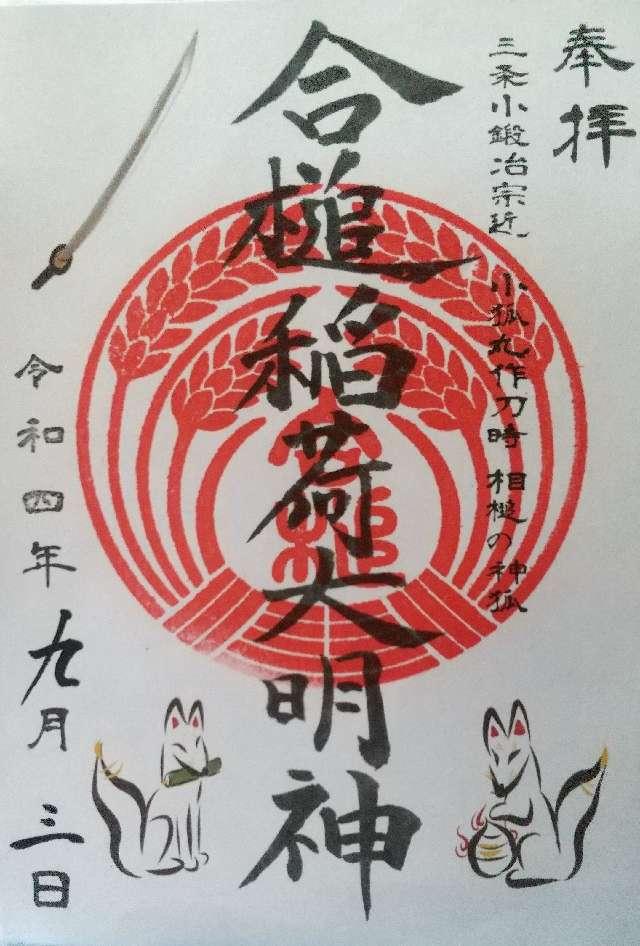 奉拝
三条小鍛冶宗近 小狐丸作刀時 相槌の神狐
合槌稲荷大明神
令和四年九月三日